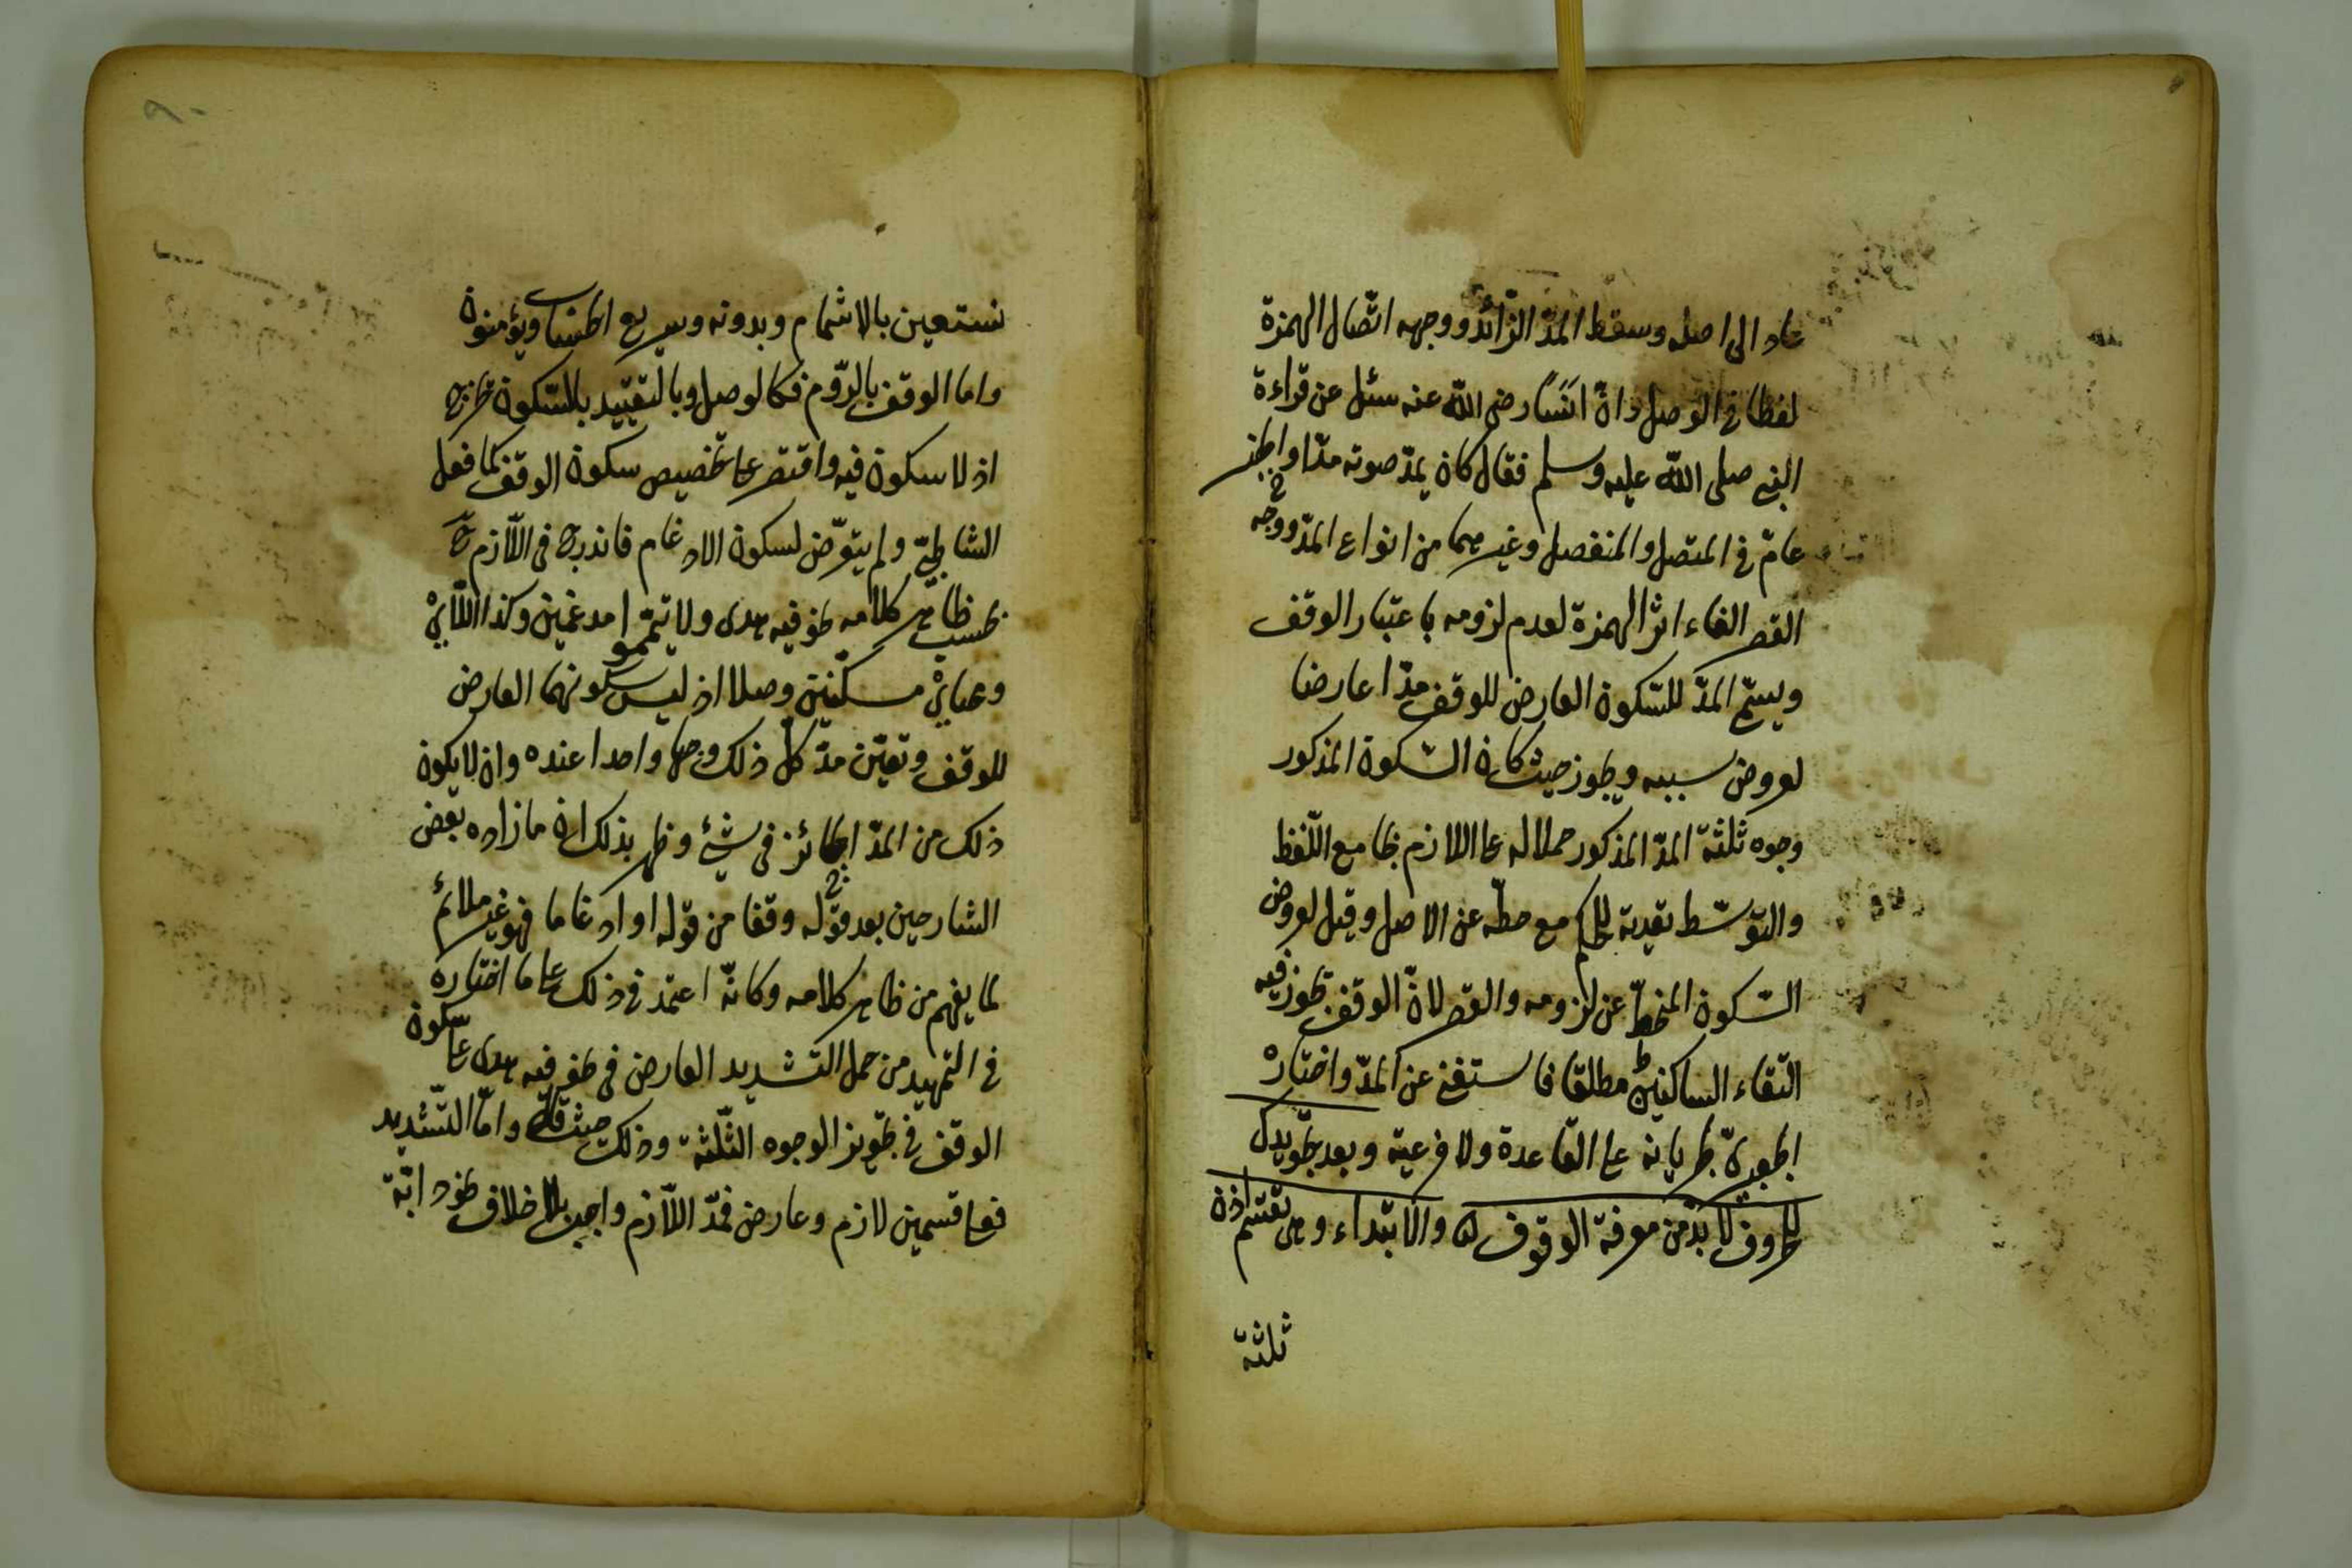 عاد الى اصله وسقط المدّ الزّائد ووجهه اتّصال الهمزة
لفظا فى الوصل وانّ انسًا رضى الله عنه سئل عن قراءة
النبى صلى الله عليه وسلم فقال كان يمدّ صوته مدّا والخبر
عامّ فى المتصل والمنفصل وغيرهما من انواع المدّ ووجه
القصر الغاء اثر الهمزة لعدم لزومه باعتبار الوقف
ويسمّى المدّ للسّكون العارض للوقف مدّا عارضا
لعروض سببه ويجوز حيث كان السّكون المذكور
وجوه ثلثة المدّ المذكور حملا له على اللازم بجامع اللّفظ
والتوسّط تعدية للحكم مع حطّه عن الاصل وقيل لعروض
السّكون المنحطّ عن لزومه والقصر لانّ الوقف يجوز فيه
التقاء الساكنين مطلقا فاستغنى عن المدّ واختاره
الجعبرىّ لجريانه على القاعدة ولا فرعية وبعد تجويدك
للحروف لا بدّ من معرفة الوقوف والابتداء وهى تقسم اذن
ثلثة
نستعين بالاشمام وبدونه وسريع الحساب ويؤمنون
واما الوقف بالرّوم فكالوصل وبالتقييد بالسّكون خرج
اذ لا سكون فيه واقتصر على تخصيص سكون الوقف كما فعل
الشاطبىّ ولم يتعرّض لسكون الادغام فاندرج فى اللّازم ح
بحسب ظاهر كلامه نحو فيه هدى ولا تيمّموا مدغمين وكذا اللّاىْ
ومحياىْ مسكّنين وصلا اذ ليس سكونهما العارض
للوقف وتعيّن مدّ كلّ ذلك وجها واحدا عنده وان لا يكون
ذلك من المدّ الجائز فى شئ وظهر بذلك ان ما زاده بعض
الشارحين بعد قوله وقفا من قوله او ادغاما فهو غير ملائم
لما يفهم من ظاهر كلامه وكانّه اعتمد فى ذلك على ما اختاره
فى التمهيد من حمل التشديد العارض فى نحو فيه هدى على سكون
الوقف فى تجويز الوجوه الثّلثة وذلك حيث قال وامّا التّشديد
فعلى قسمين لازم وعارض فمدّ اللّازم واجب بلا خلاف نحو دابّة